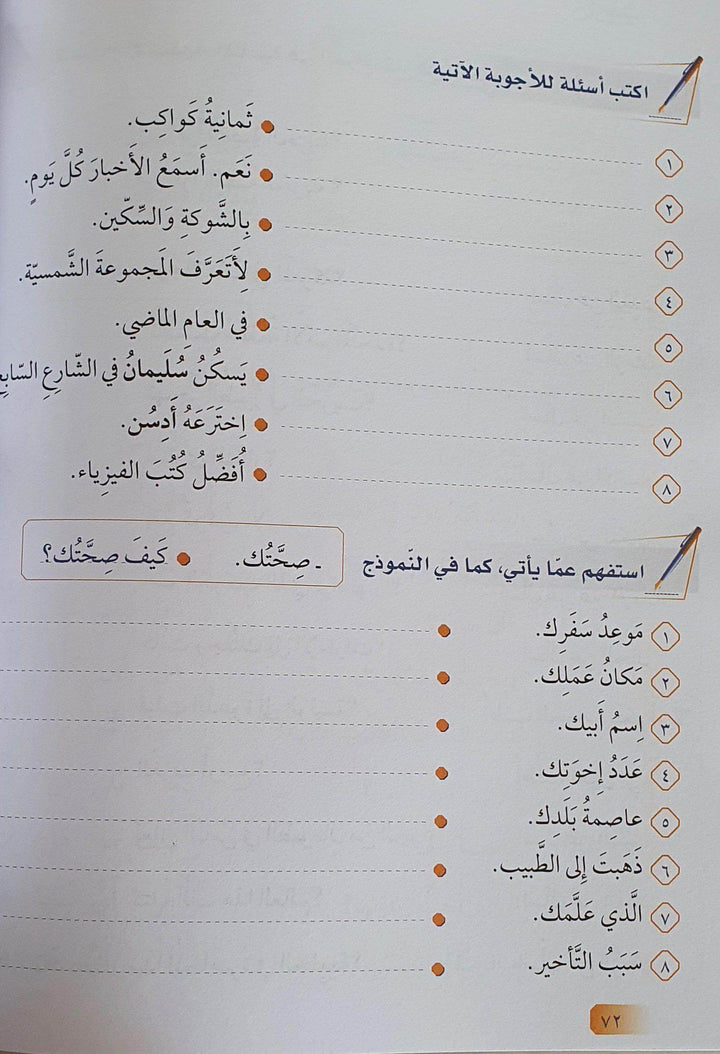 اكتب أسئلة للأجوبة الآتية
١ ثَمانِيةُ كَواكِب.
٢ نَعَم. أَسمَعُ الأَخبارَ كُلَّ يَومٍ.
٣ بِالشَّوكةِ وَالسِّكّين.
٤ لِأَتَعَرَّفَ المَجموعةَ الشَّمسيّة.
٥ في العامِ الماضي.
٦ يَسكُنُ سُلَيمانُ في الشّارِعِ
٧ اِختَرَعَهُ أَدِسُن.
٨ أُفَضِّلُ كُتُبَ الفيزِياء.
استفهم عمّا يأتي، كما في النّموذج - صِحَّتُك. كَيفَ صِحَّتُك؟
١ مَوعِدُ سَفَرِك.
٢ مَكانُ عَمَلِك.
٣ اِسمُ أَبيك.
٤ عَدَدُ إِخوَتِك.
٥ عاصِمةُ بَلَدِك.
٦ ذَهَبتَ إِلى الطَّبيب.
٧ الَّذي عَلَّمَك.
٨ سَبَبُ التَّأخير.
٧٢